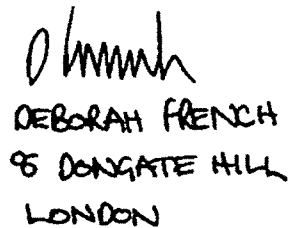 DEBORAH FRENCH
8 DONGATE HILL
LONDON